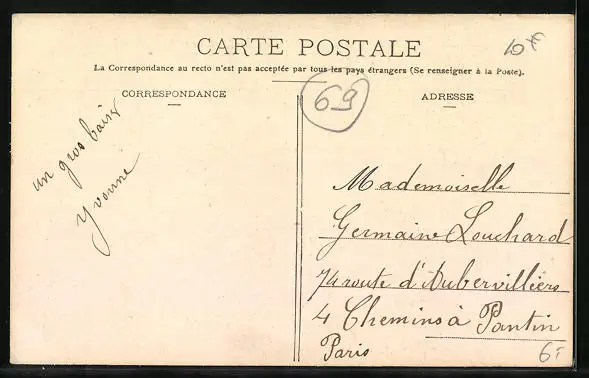 CARTE POSTALE
La Correspondance au recto n'est pas acceptée par tous les pays étrangers (Se renseigner à la Poste).
CORRESPONDANCE
ADRESSE
69
un gros baiser
Yvonne
Mademoiselle
Germaine Louchard
74 route d'Aubervilliers
4 Chemins à Pantin
Paris